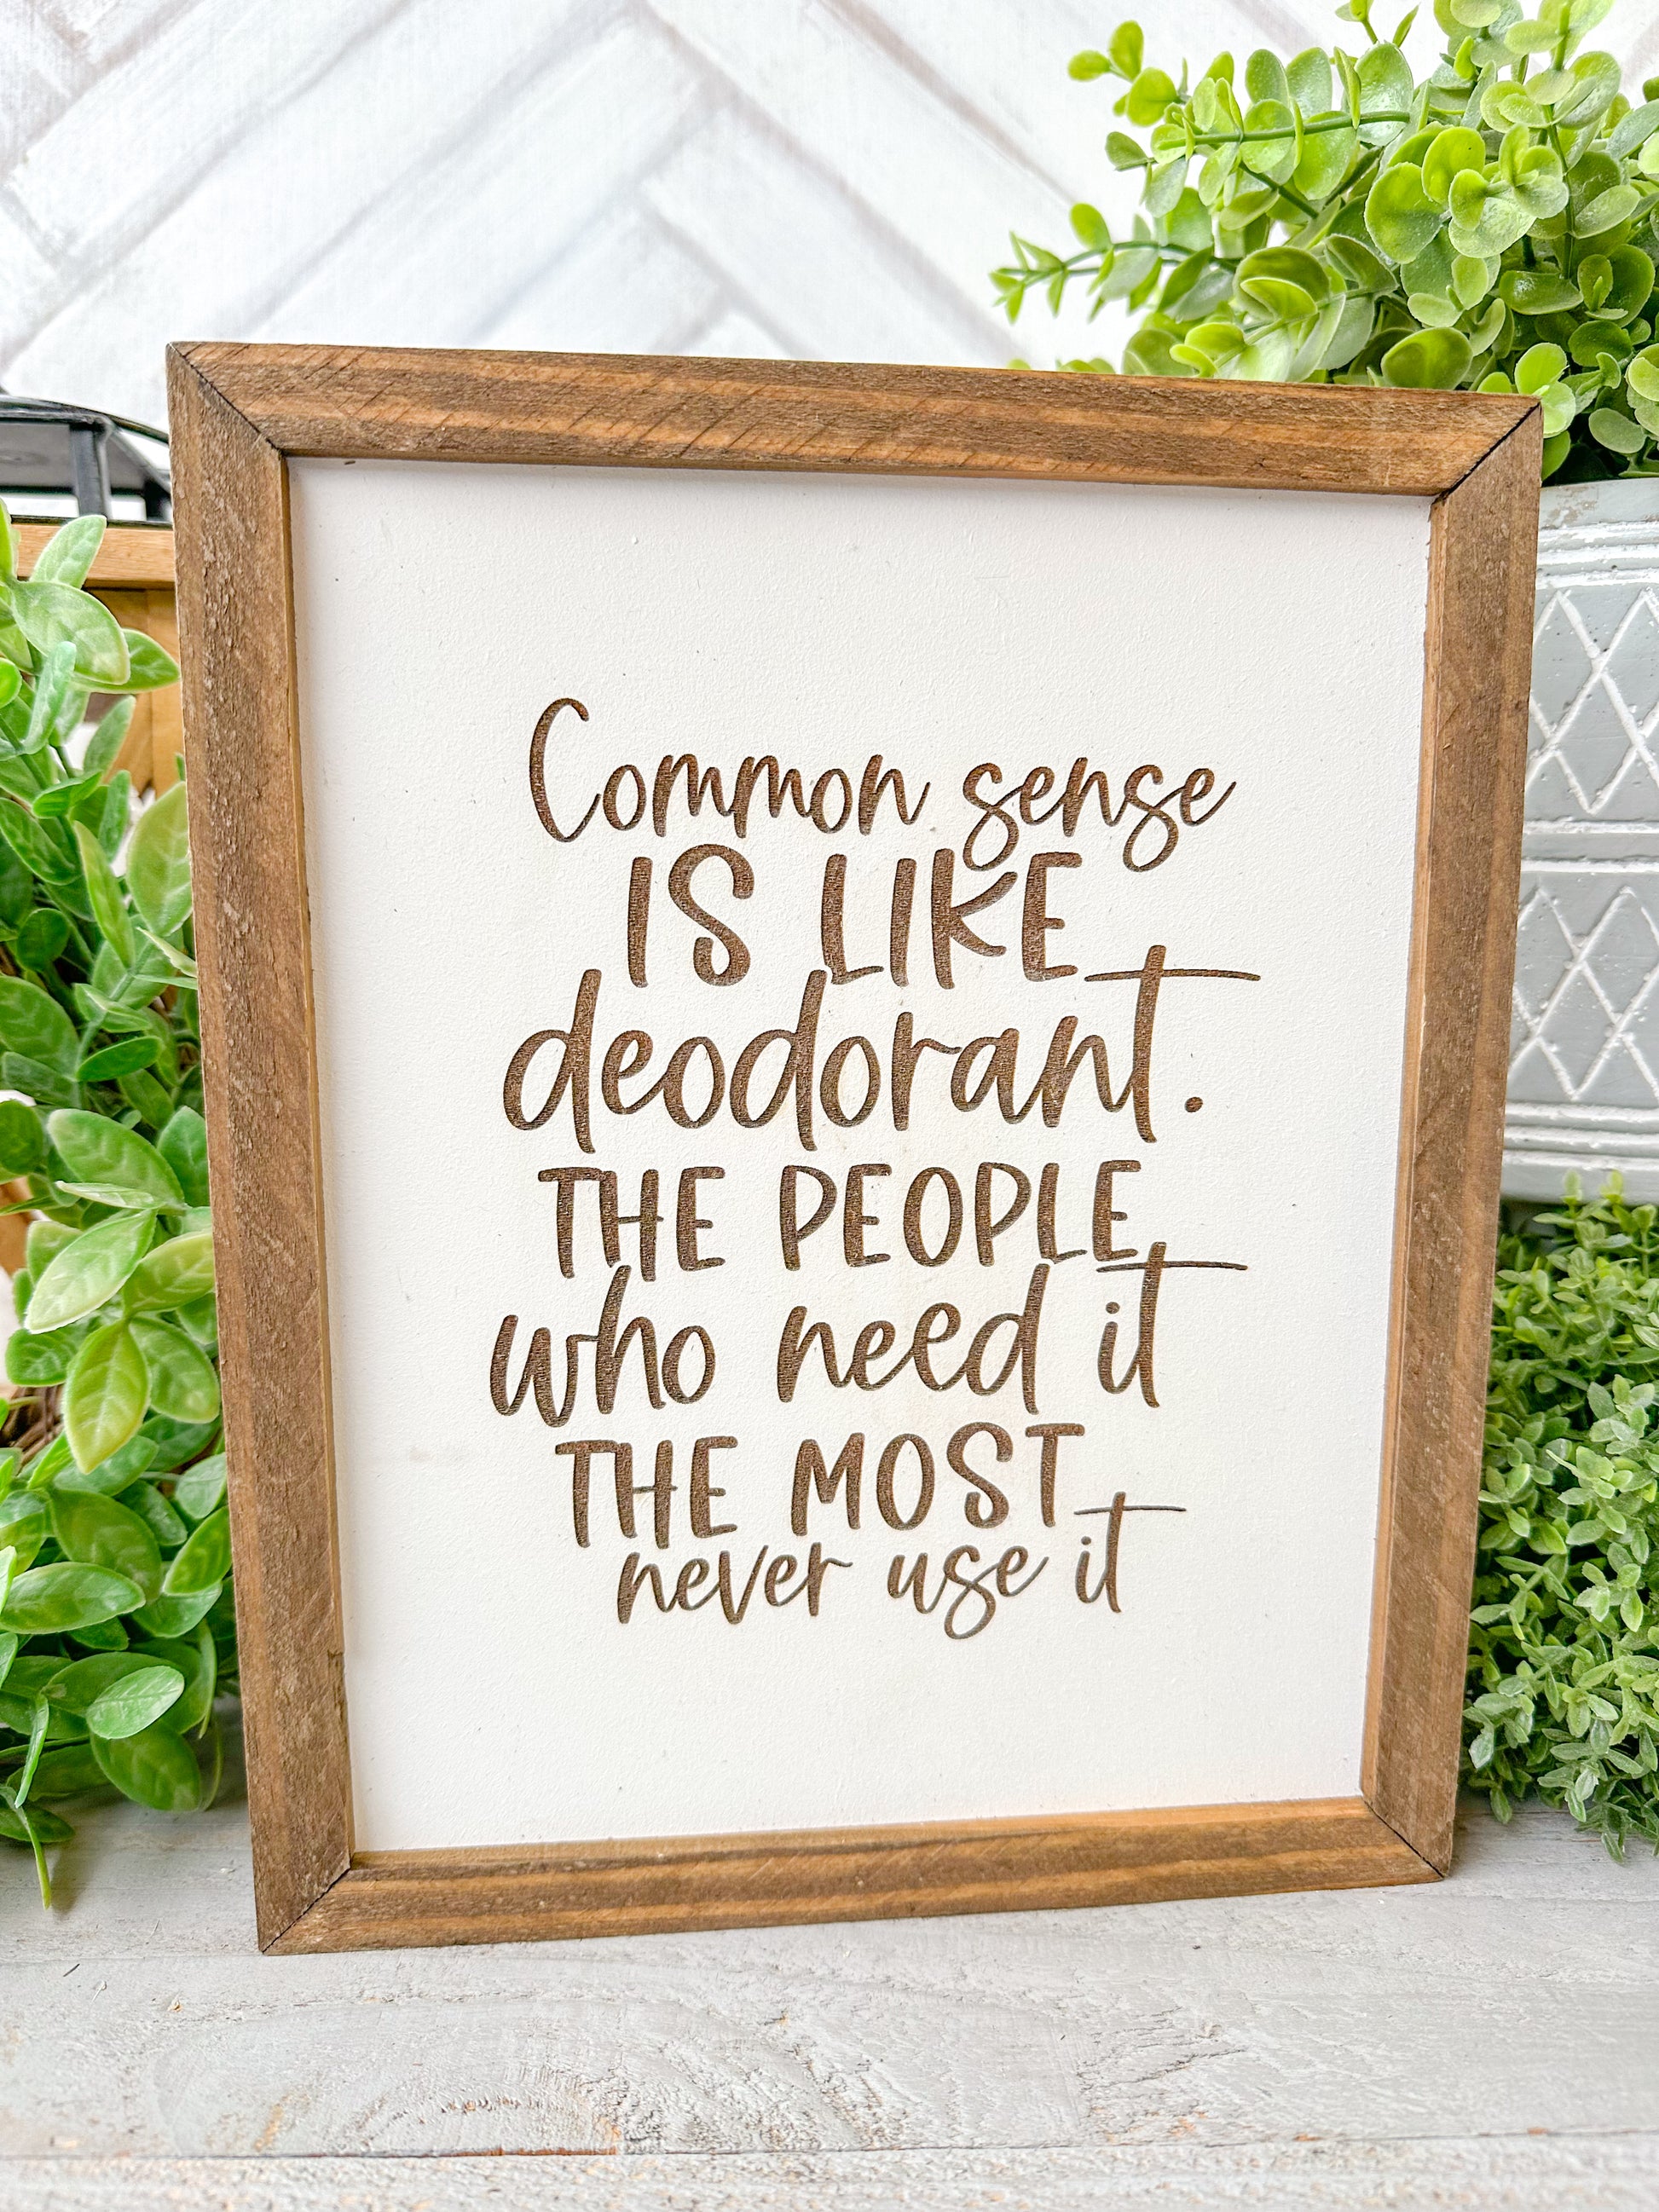 Common sense
IS LIKE
deodorant.
THE PEOPLE
who need it
THE MOST
never use it